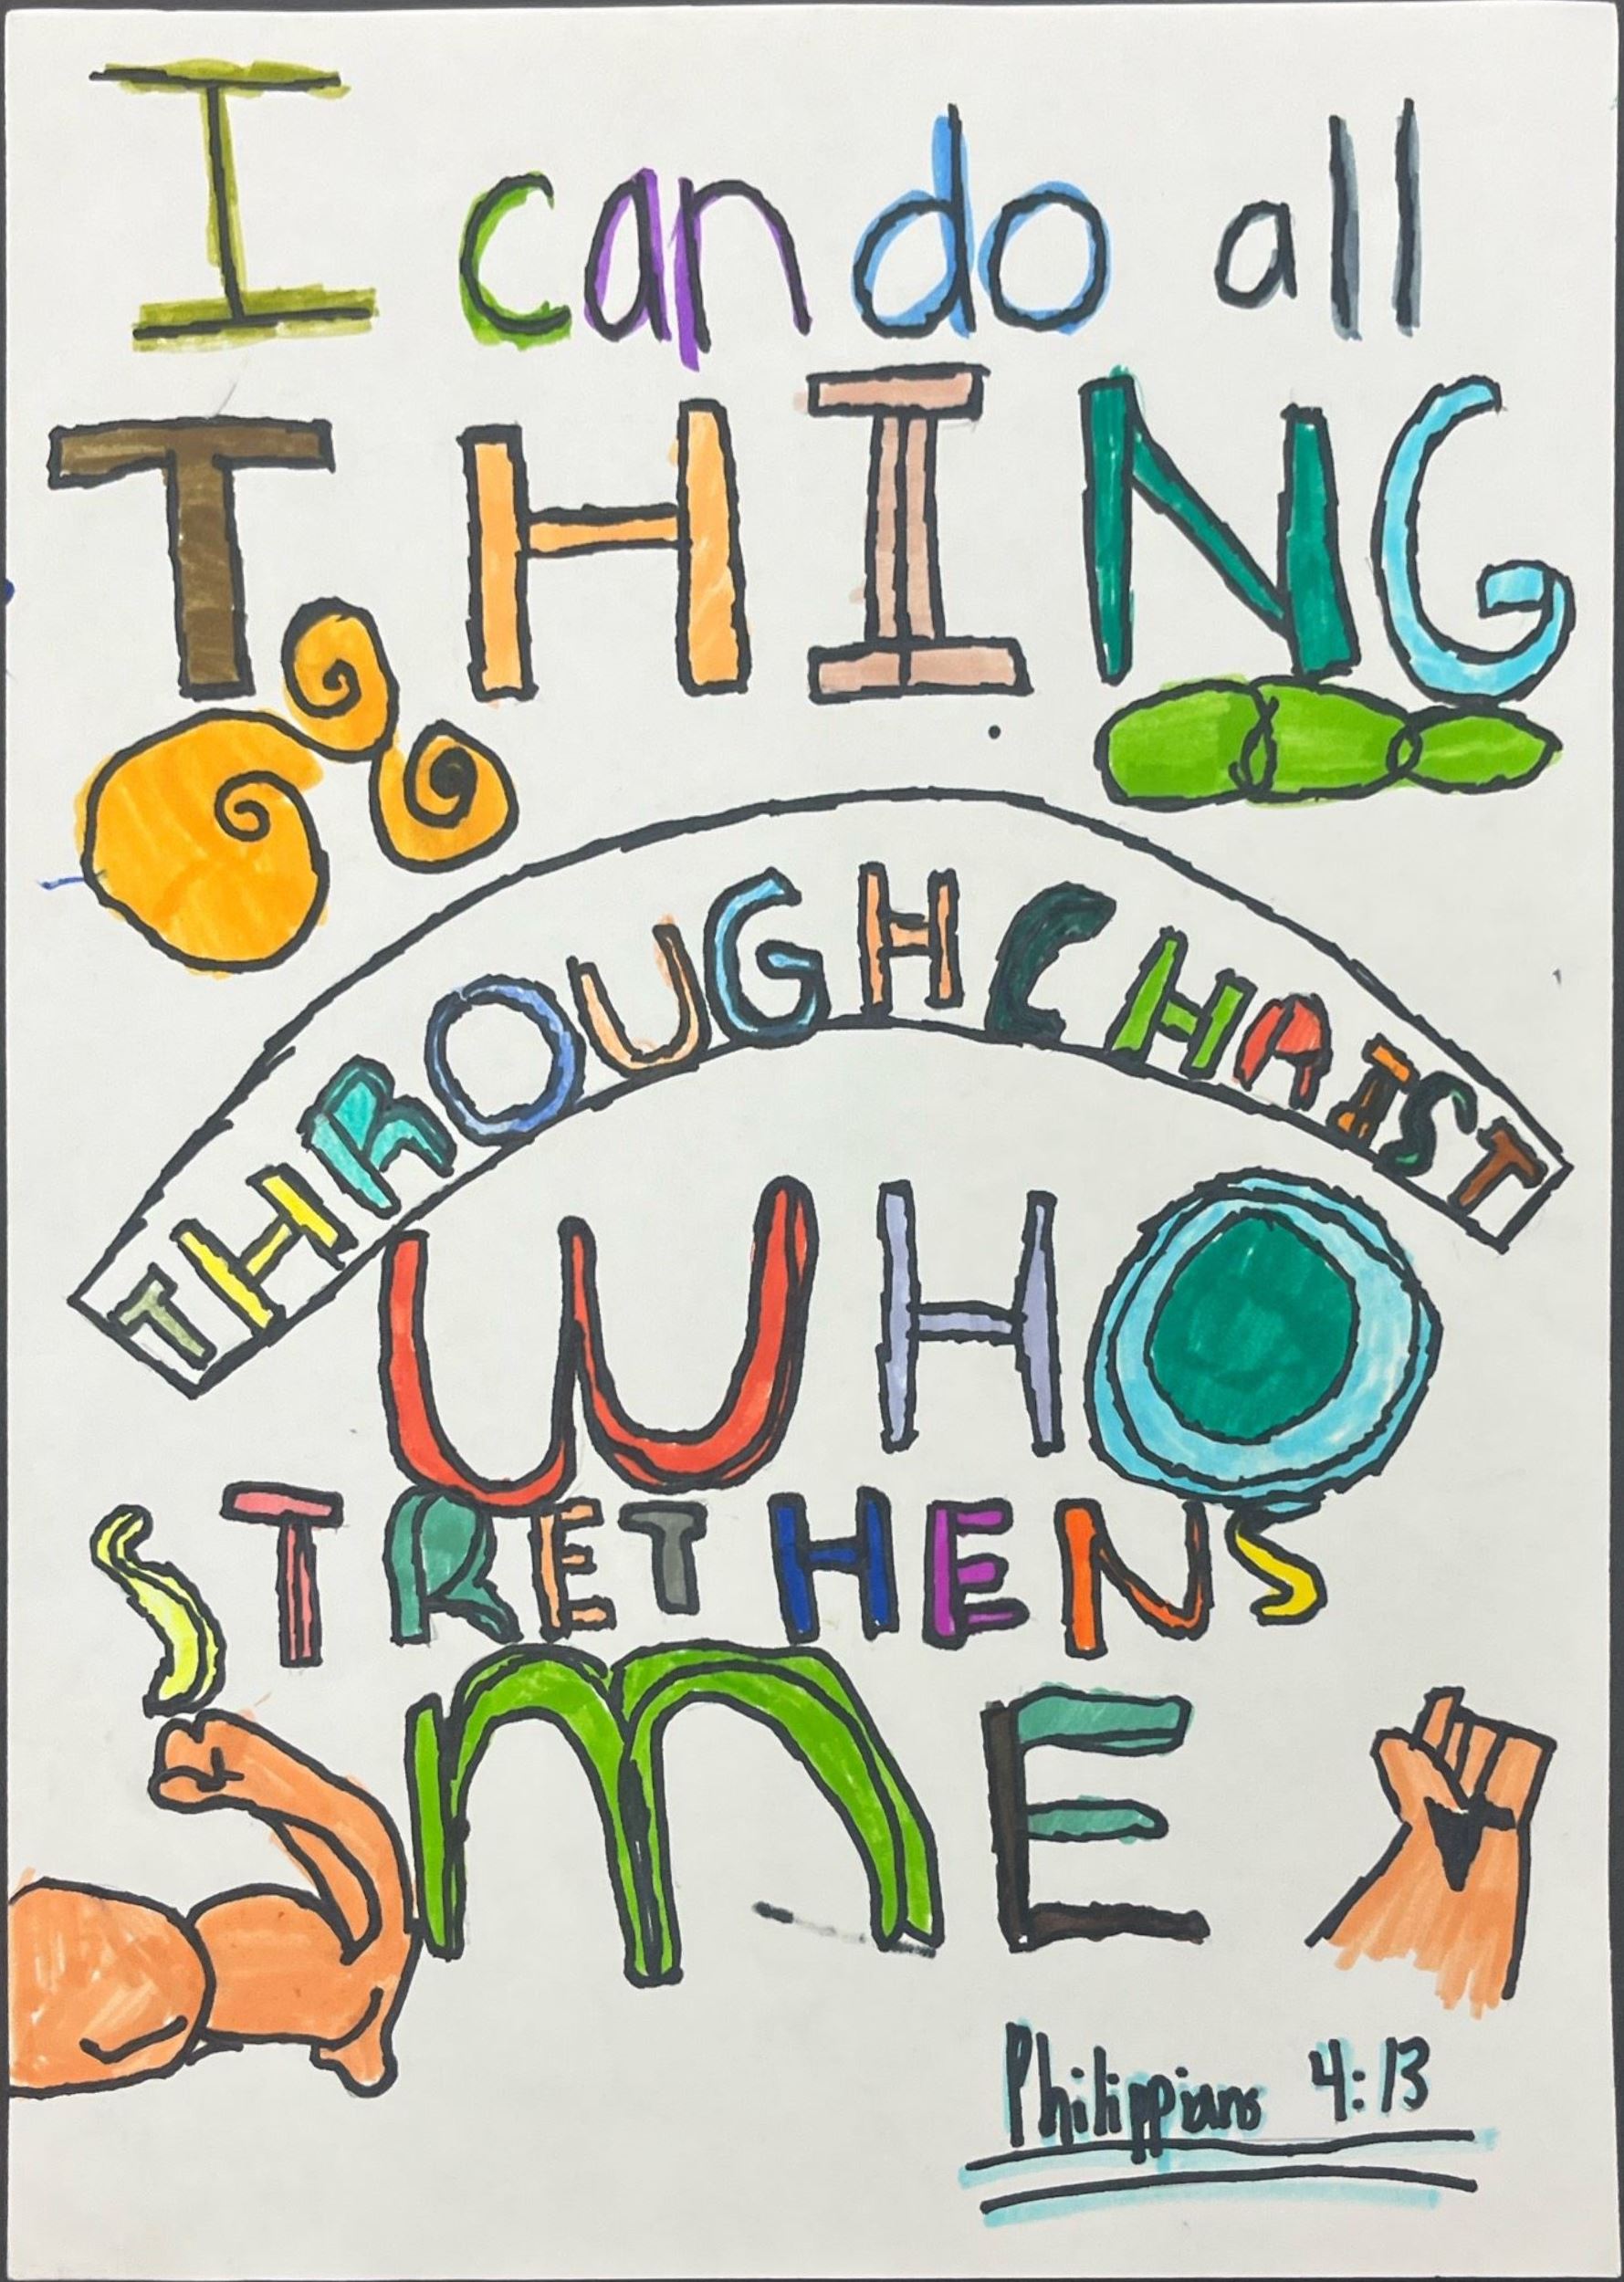 I can do all
THING
THROUGH CHRIST
WHO
STRETHENS
ME
Philippians 4:13